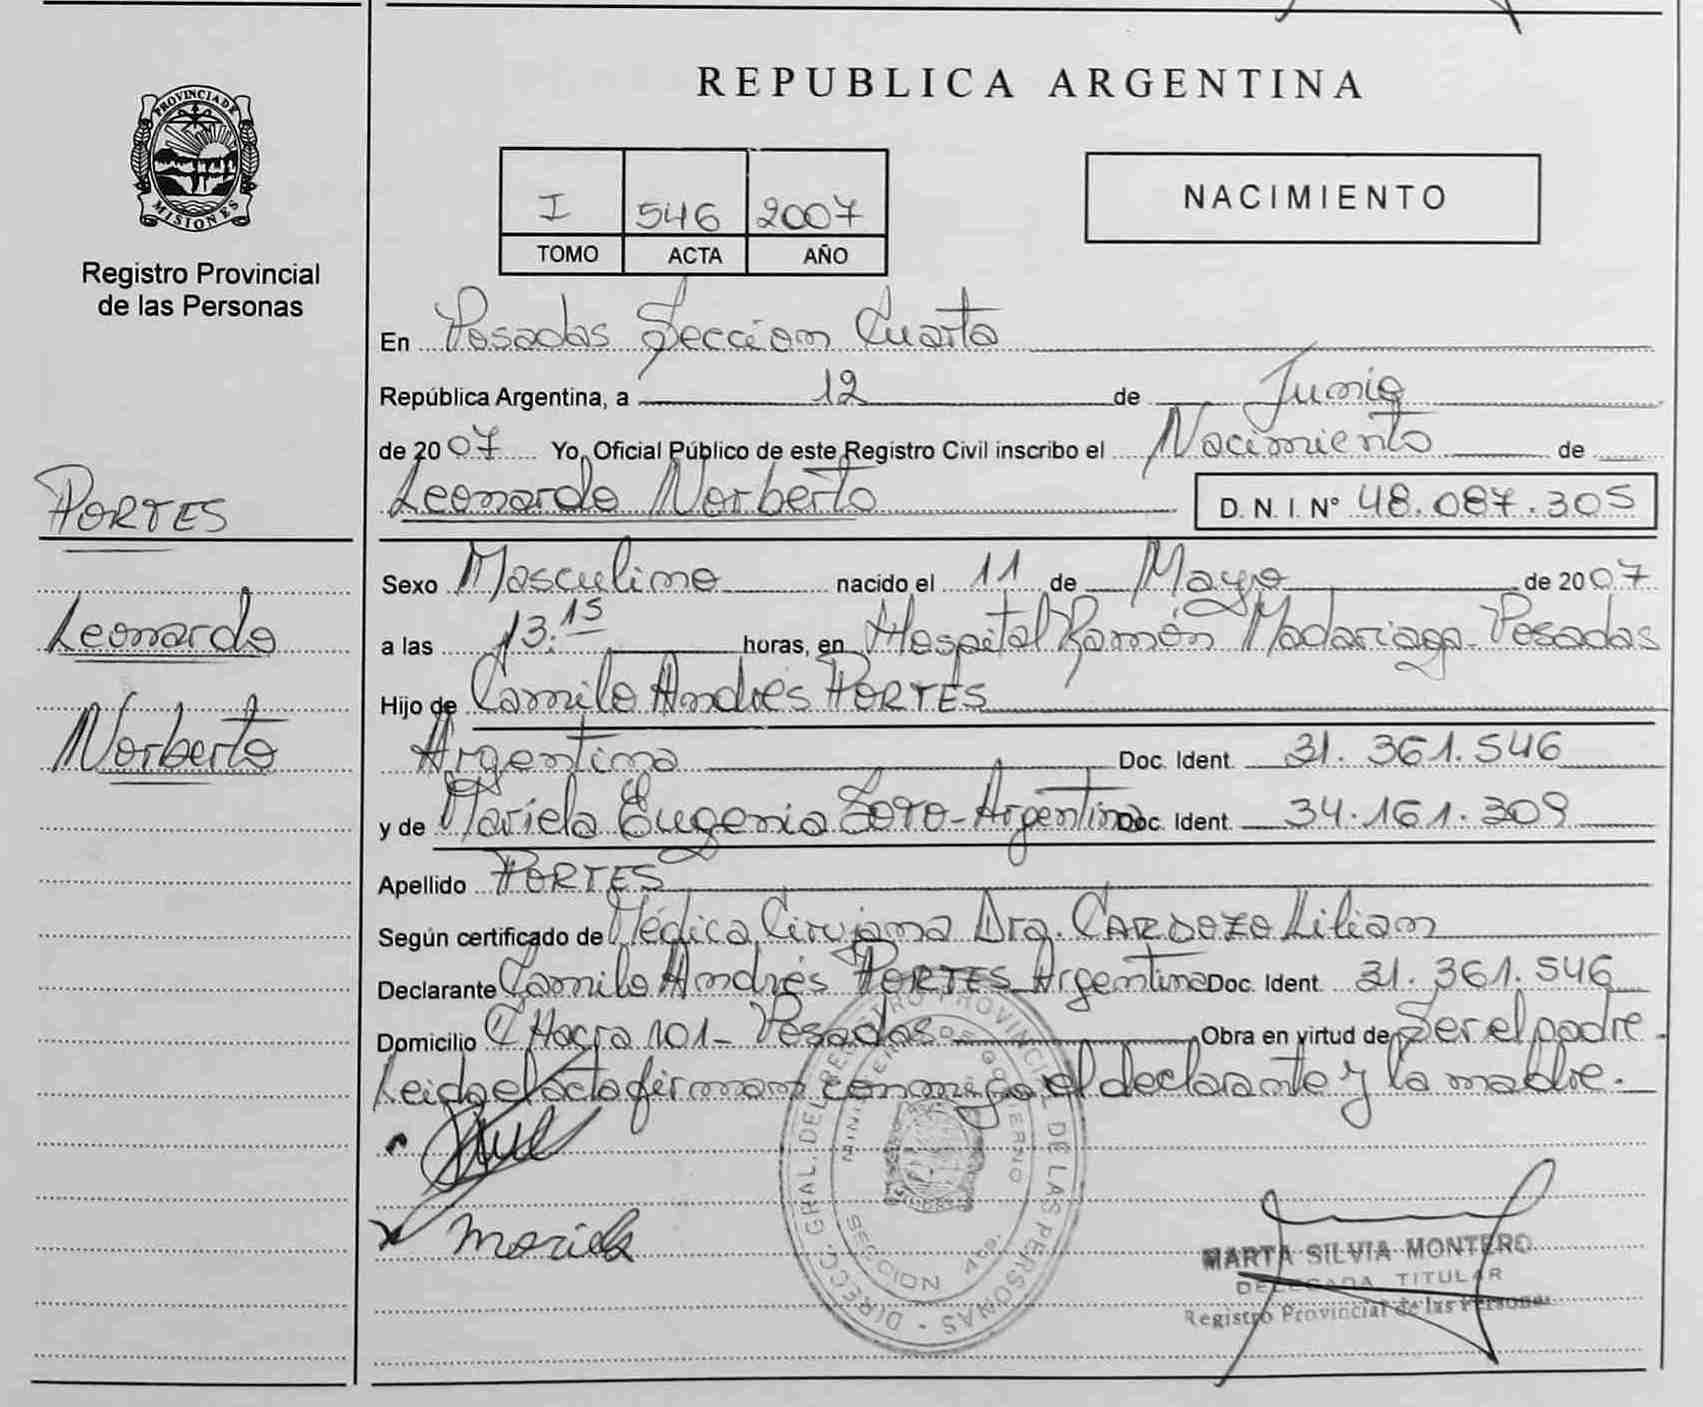 REPUBLICA ARGENTINA
PROVINCIA DE
MISIONES
Registro Provincial
de las Personas
NACIMIENTO
I 546 2007
TOMO ACTA AÑO
En Posadas Sección Cuarta
República Argentina, a 12 de Junio
de 2007 Yo, Oficial Público de este Registro Civil inscribo el Nacimiento de
Leonardo Norberto D. N. I. Nº 48.087.305
PORTES
Leonardo
Norberto
Sexo Masculino nacido el 11 de Mayo de 2007
a las 13:15 horas, en Hospital Ramón Madariaga - Posadas
Hijo de Camilo Andrés PORTES
Argentina Doc. Ident. 31.361.546
y de Mariela Eugenia SOTO - Argentina Doc. Ident. 34.161.309
Apellido PORTES
Según certificado de Médica Cirujana Dra. CARDOZO Lilian
Declarante Camilo Andrés PORTES Argentina Doc. Ident. 31.361.546
Domicilio CHacra 101 - Posadas Obra en virtud de Ser el padre -
Leida el acta firman conmigo el declarante y la madre. -
Mariela
DIRECC. GRAL. DEL REGISTRO PROVINCIAL DE LAS PERSONAS
MINISTERIO DE GOBIERNO
SECCION 4ta.
MARTA SILVIA MONTERO
DELEGADA TITULAR
Registro Provincial de las Personas